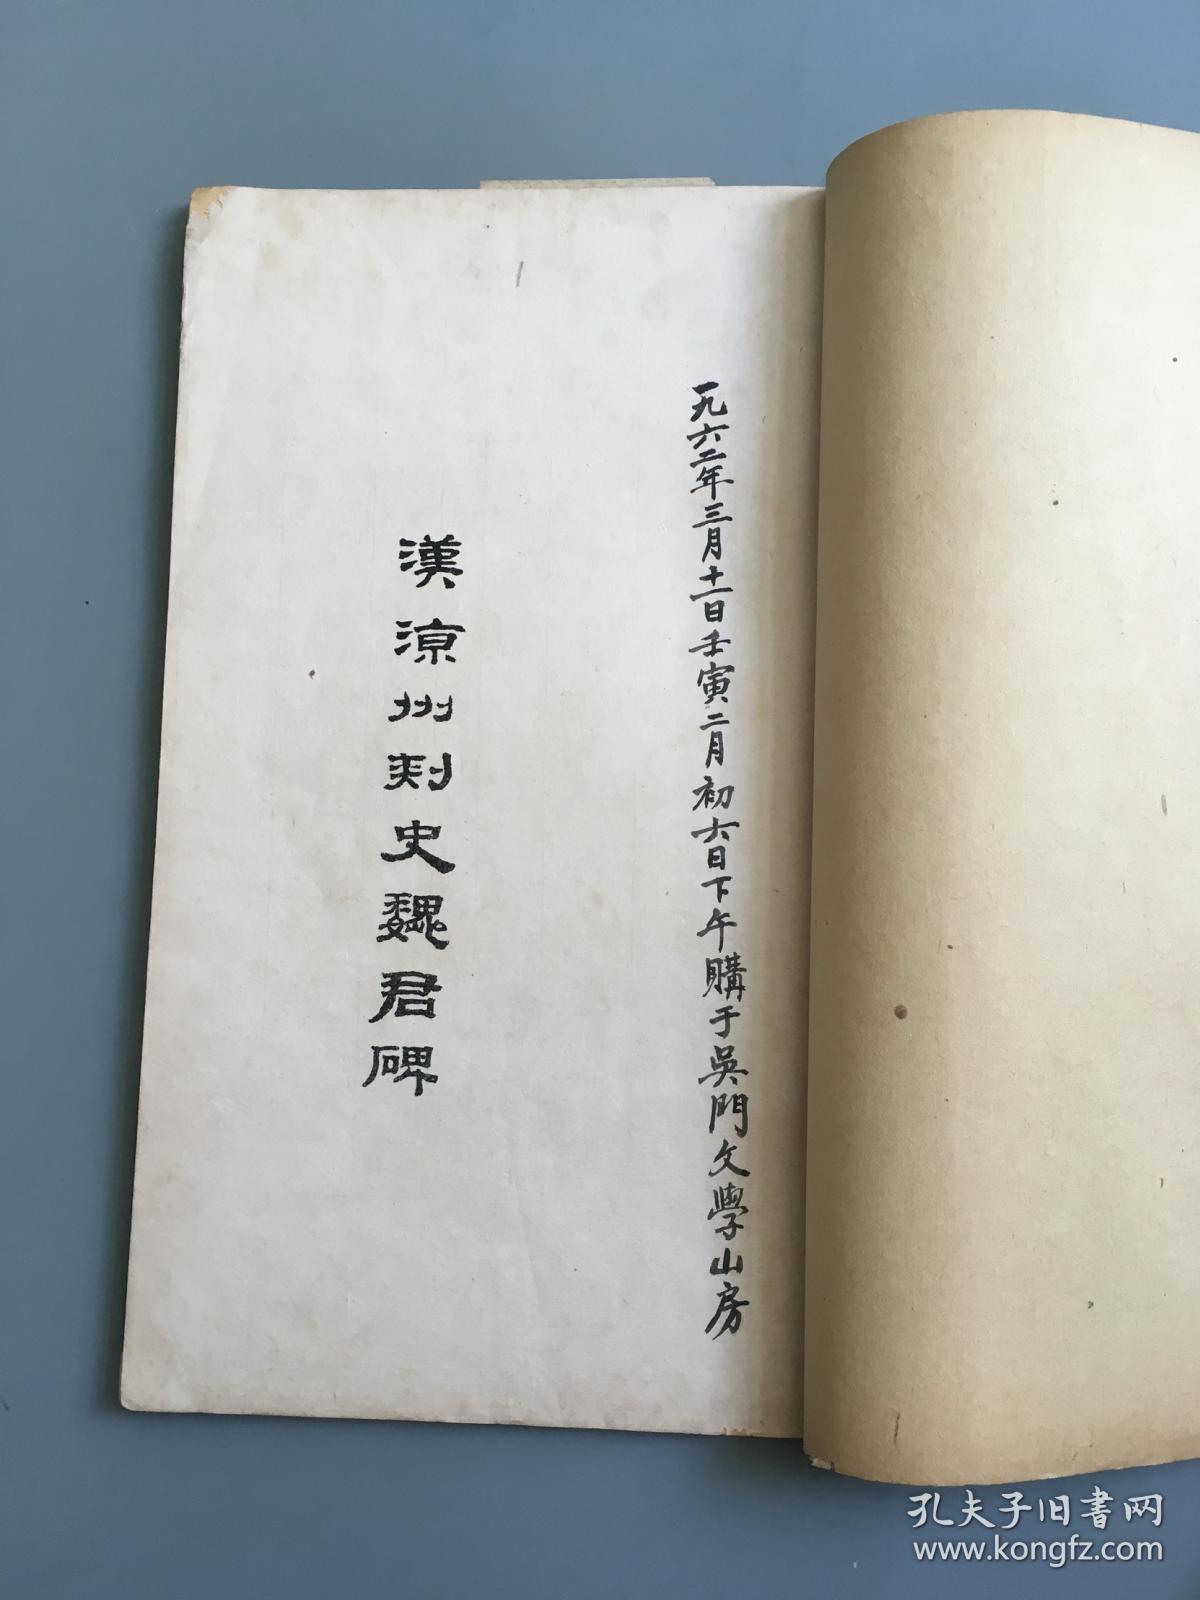 一九六二年三月十一日壬寅二月初六日下午購于吳門文學山房
漢涼州刺史魏君碑
孔夫子旧書网
www.kongfz.com